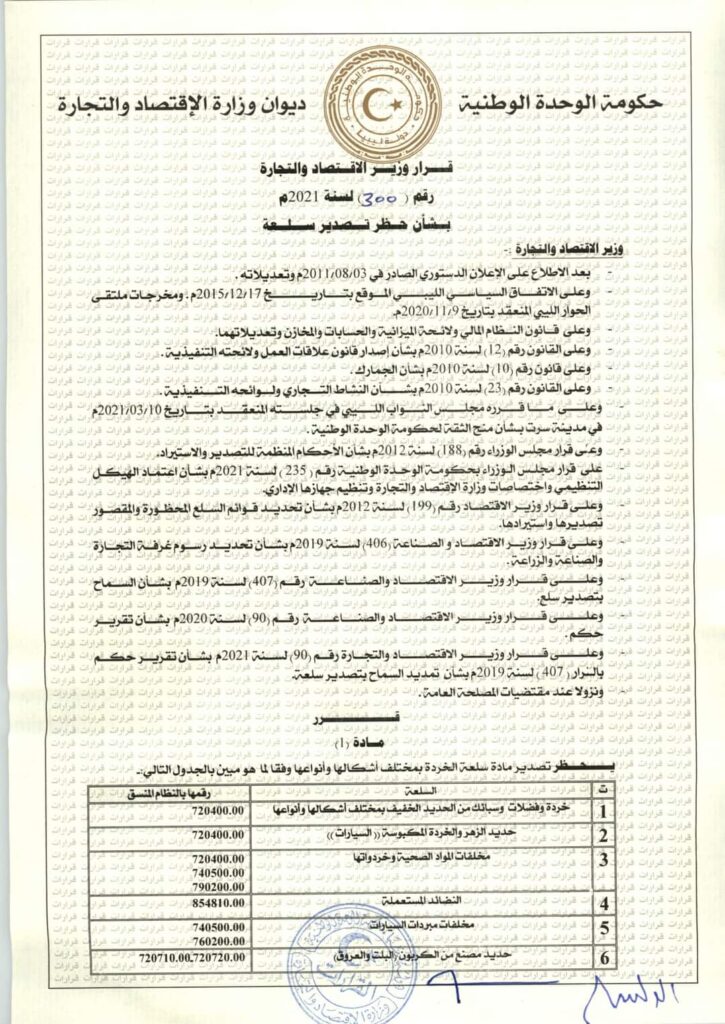 حكومة الوحدة الوطنية
ديوان وزارة الإقتصاد والتجارة
حكومة الوحدة الوطنية
دولة ليبيا
قرار وزير الاقتصاد والتجارة
رقم (300) لسنة 2021م
بشأن حظر تصدير سلعة
وزير الاقتصاد والتجارة :-
- بعد الاطلاع على الإعلان الدستوري الصادر في 2011/08/03م وتعديلاته .
- وعلى الاتفاق السياسي الليبي الموقع بتاريخ 2015/12/17م . ومخرجات ملتقى
الحوار الليبي المنعقد بتاريخ 2020/11/9م.
- وعلى قانون النظام المالي ولائحة الميزانية والحسابات والمخازن وتعديلاتهما.
- وعلى القانون رقم (12) لسنة 2010م بشأن إصدار قانون علاقات العمل ولائحته التنفيذية .
- وعلى قانون رقم (10) لسنة 2010م بشأن الجمارك .
- وعلى القانون رقم (23) لسنة 2010م بشأن النشاط التجاري ولوائحه التنفيذية .
- وعلى ما قرره مجلس النواب الليبي في جلسته المنعقد بتاريخ 2021/03/10م
في مدينة سرت بشأن منح الثقة لحكومة الوحدة الوطنية .
- وعلى قرار مجلس الوزراء رقم (188) لسنة 2012م بشأن الأحكام المنظمة للتصدير والاستيراد.
- على قرار مجلس الوزراء بحكومة الوحدة الوطنية رقم ( 235) لسنة 2021م بشأن اعتماد الهيكل
التنظيمي واختصاصات وزارة الإقتصاد والتجارة وتنظيم جهازها الاداري.
- وعلى قرار وزير الاقتصاد رقم (199) لسنة 2012م بشأن تحديد قوائم السلع المحظورة والمقصور
تصديرها واستيرادها.
- وعلى قرار وزير الاقتصاد و الصناعة (406) لسنة 2019م بشأن تحديد رسوم غرفة التجارة
والصناعة والزراعة.
- وعلى قرار وزير الاقتصاد والصناعة رقم (407) لسنة 2019م بشأن السماح
بتصدير سلع.
- وعلى قرار وزير الاقتصاد والصناعة رقم (90) لسنة 2020م بشأن تقرير
حكم .
- وعلى قرار وزير الاقتصاد والتجارة رقم (90) لسنة 2021م بشأن تقرير حكم
بالقرار (407) لسنة 2019م بشأن تمديد السماح بتصدير سلعة.
- ونزولا عند مقتضيات المصلحة العامة .
قـــــرر
مادة (1)
يحظر تصدير مادة سلعة الخردة بمختلف أشكالها وأنواعها وفقا لما هو مبين بالجدول التالي:-
ت السلعة رقمها بالنظام المنسق
1 خردة وفضلات وسبائك من الحديد الخفيف بمختلف أشكالها وأنواعها 720400.00
2 حديد الزهر والخردة المكبوسة ((السيارات)) 720400.00
3 مخلفات المواد الصحية وخرداتها 720400.00
740500.00
790200.00
4 النضائد المستعملة 854810.00
5 مخلفات مبردات السيارات 740500.00
760200.00
6 حديد مصنع من الكربون (البلت والعروق) 720710.00_720720.00